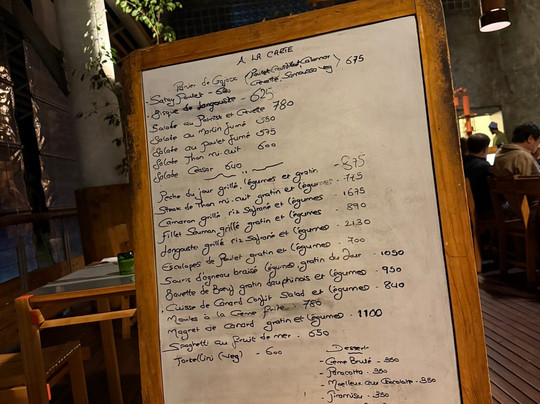 A LA CARTE
Panier de Gajacs (Poulet Croustillant, Calamar 675
Crevette Samoussa veg)
- Satay Poulet - 600
- Bisque de Langouste - 625
Salade au Poulpe et Crevette 780
Salade au Marlin fumé - 550
Salade au poulet fumé - 575
Salade Thon mi-cuit - 600
Salade Cesar 640
Peche du jour grillé, légumes et gratin - 875
Steak de Thon mi-cuit gratin et légumes - 775
Camaron grillé riz Safrané et légumes - 1675
fillet Saumon grillé gratin et légumes - 890
Langouste grillé riz Safrané et légumes - 2130
Escalopes de Poulet gratin et légumes - 700
Souris d'agneau braisé légumes, gratin du Jour - 1050
Bavette de Boeuf gratin dauphinois et légumes - 950
Cuisse de Canard Confit Salad et légumes - 840
Moules à la Crème frite - 780
Magret de Canard gratin et légumes - 1100
Spaghetti au fruit de mer - 650
Tortellini (veg) - 600
Desserts
- Crème Brulé - 350
- Panacotta - 350
- Moelleux au Chocolate - 350
- Tiramisu - 350